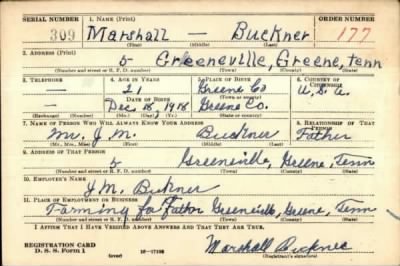 SERIAL NUMBER 1. NAME (Print) ORDER NUMBER
309 Marshall — Buckner 177
(First) (Middle) (Last)
2. ADDRESS (Print)
5 Greeneville, Greene, Tenn
(Number and street or R. F. D. number) (Town) (County) (State)
3. TELEPHONE 4. AGE IN YEARS 5. PLACE OF BIRTH 6. COUNTRY OF CITIZENSHIP
— 21 Greene Co U.S.A.
DATE OF BIRTH (Town or county)
— Dec 18, 1918 Greene Co.
(Exchange) (Number) (Mo.) (Day) (Yr.) (State or country)
7. NAME OF PERSON WHO WILL ALWAYS KNOW YOUR ADDRESS 8. RELATIONSHIP OF THAT PERSON
Mr. J.M. Buckner Father
(Mr., Mrs., Miss) (First) (Middle) (Last)
9. ADDRESS OF THAT PERSON
5 Greeneville, Greene, Tenn
(Number and street or R. F. D. number) (Town) (County) (State)
10. EMPLOYER'S NAME
J.M. Buckner
11. PLACE OF EMPLOYMENT OR BUSINESS
Farming for Father Greeneville, Greene, Tenn
(Number and street or R. F. D. number) (Town) (County) (State)
I AFFIRM THAT I HAVE VERIFIED ABOVE ANSWERS AND THAT THEY ARE TRUE.
REGISTRATION CARD
D. S. S. Form 1 (over) Marshall Buckner
(Registrant's signature)